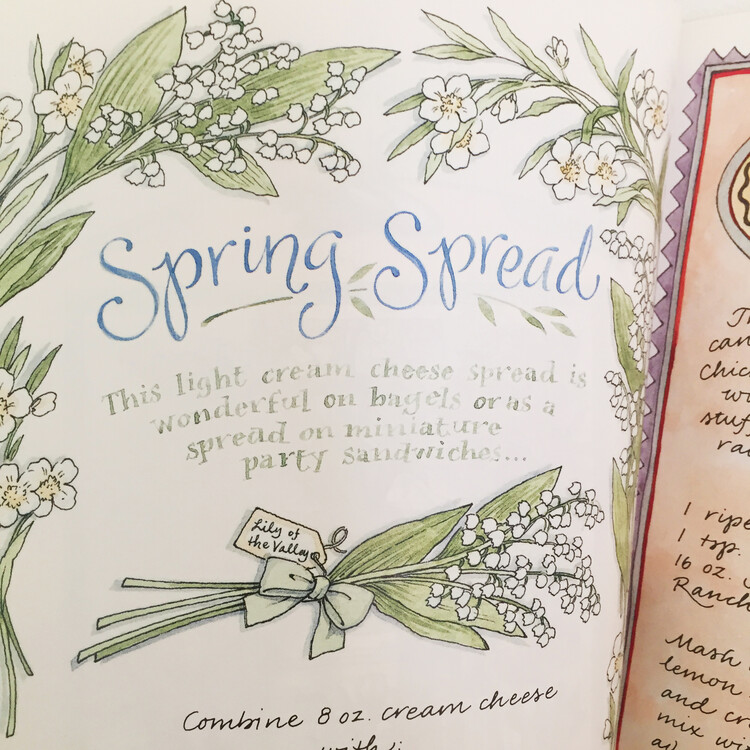 Spring Spread
This light cream cheese spread is
wonderful on bagels or as a
spread on miniature
party sandwiches...
Lily of
the Valley
Combine 8 oz. cream cheese
with:
1 ripe
1 tsp.
16 oz.
Ranch
Mash
lemon
and
mix